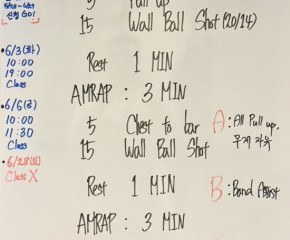 5/28~6/1
신청 GO!
•6/3(화)
10:00
19:00
Class
•6/6(금)
10:00
11:30
Class
•6/28(토)
Class X
5 Pull up
15 Wall Ball Shot (20/14)
Rest 1 MIN
AMRAP : 3 MIN
5 Chest to bar
15 Wall Ball Shot
Rest 1 MIN
AMRAP : 3 MIN
A : All Pull up,
무게
B : Band Assist